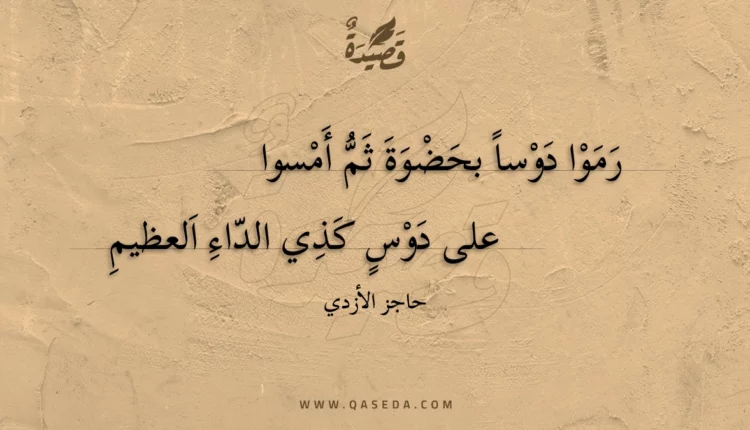 قَصِيْدَةٌ
رَمَوْا دَوْساً بحَضْوَةَ ثَمُّ أَمْسوا
على دَوْسٍ كَذِي الدّاءِ اَلعظيمِ
حاجز الأزدي
WWW.QASEDA.COM